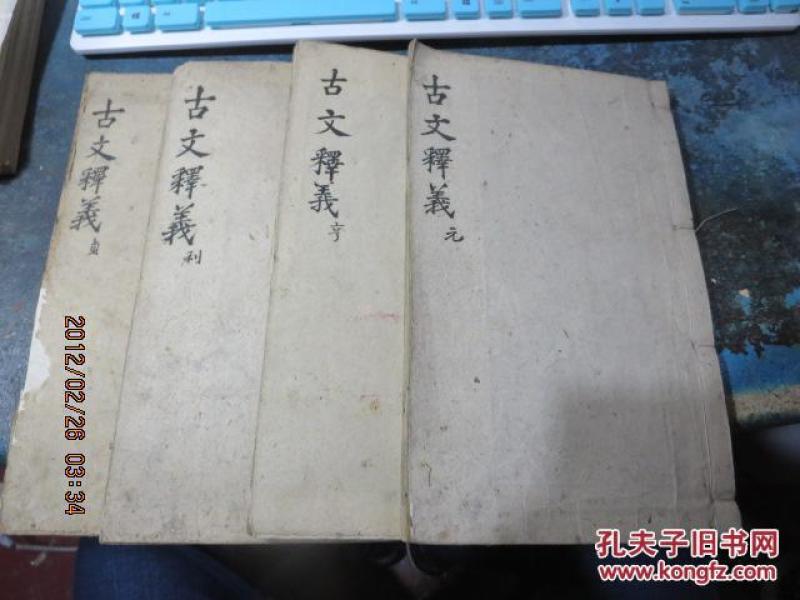 古文釋義 元
古文釋義 亨
古文釋義 利
古文釋義 貞
2012/02/26 03:34
孔夫子旧书网
www.kongfz.com